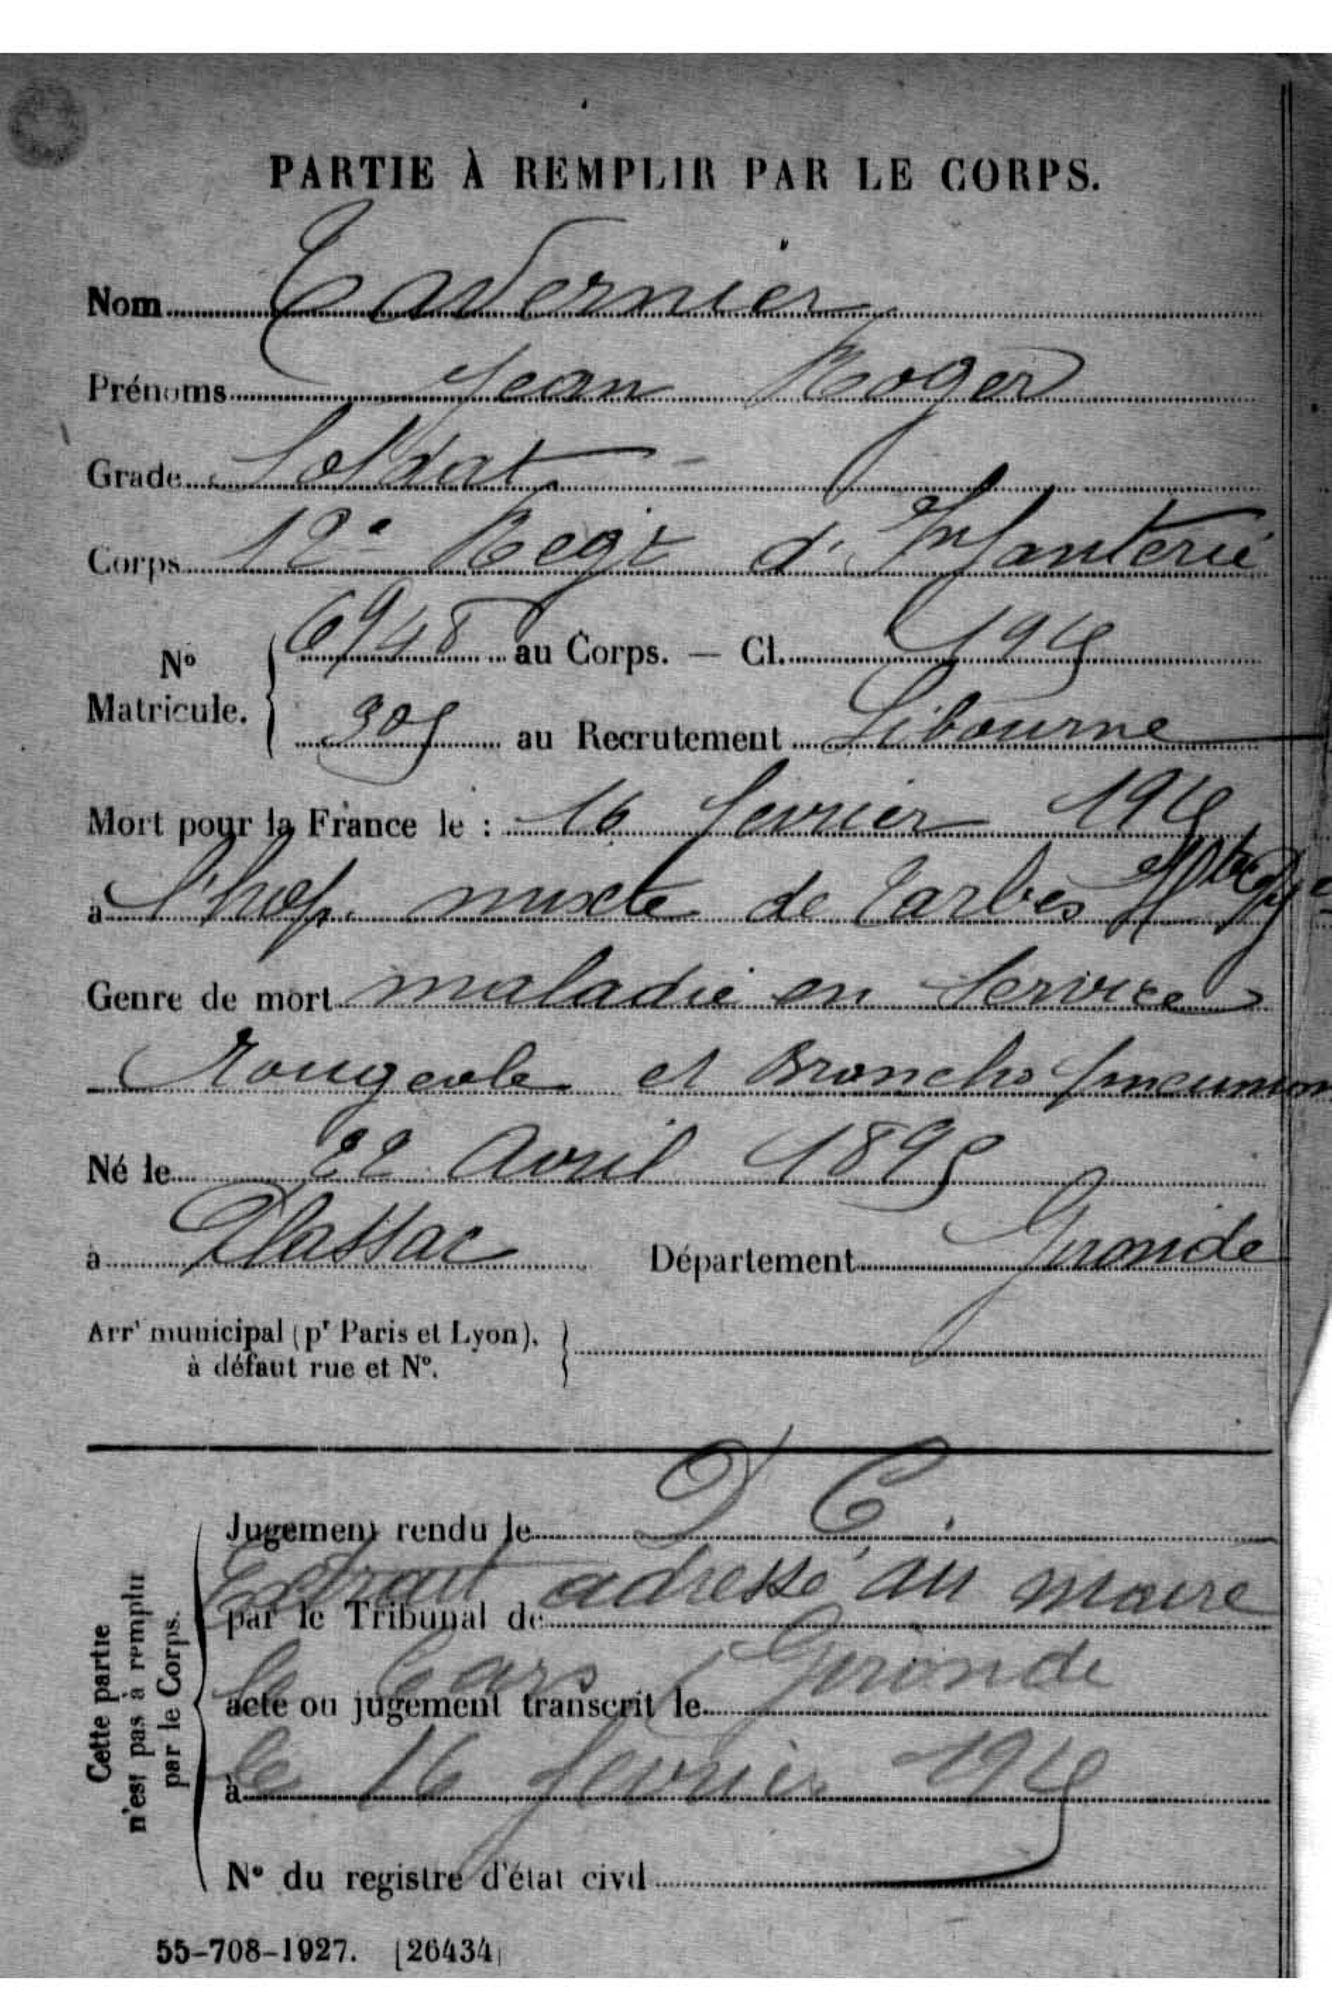 PARTIE À REMPLIR PAR LE CORPS.
Nom Tavernier
Prénoms Jean Roger
Grade Soldat
Corps 12e Regt d'Infanterie
No Matricule. 6948 au Corps. — Cl. 1915
305 au Recrutement Libourne
Mort pour la France le : 16 fevrier 1915
à l'hop. mixte de Tarbes
Genre de mort maladie en Service
Rougeole et Broncho pneumon
Né le 22 Avril 1895
à Plassac Département Gironde
Arrt municipal (pr Paris et Lyon),
à défaut rue et No.
Cette partie
n'est pas à remplir
par le Corps.
Jugement rendu le D C.
Extrait adressé au maire
par le Tribunal de
le Cars Gironde
acte ou jugement transcrit le
le 16 fevrier 1915
à
No du registre d'état civil
55-708-1927. [26434]